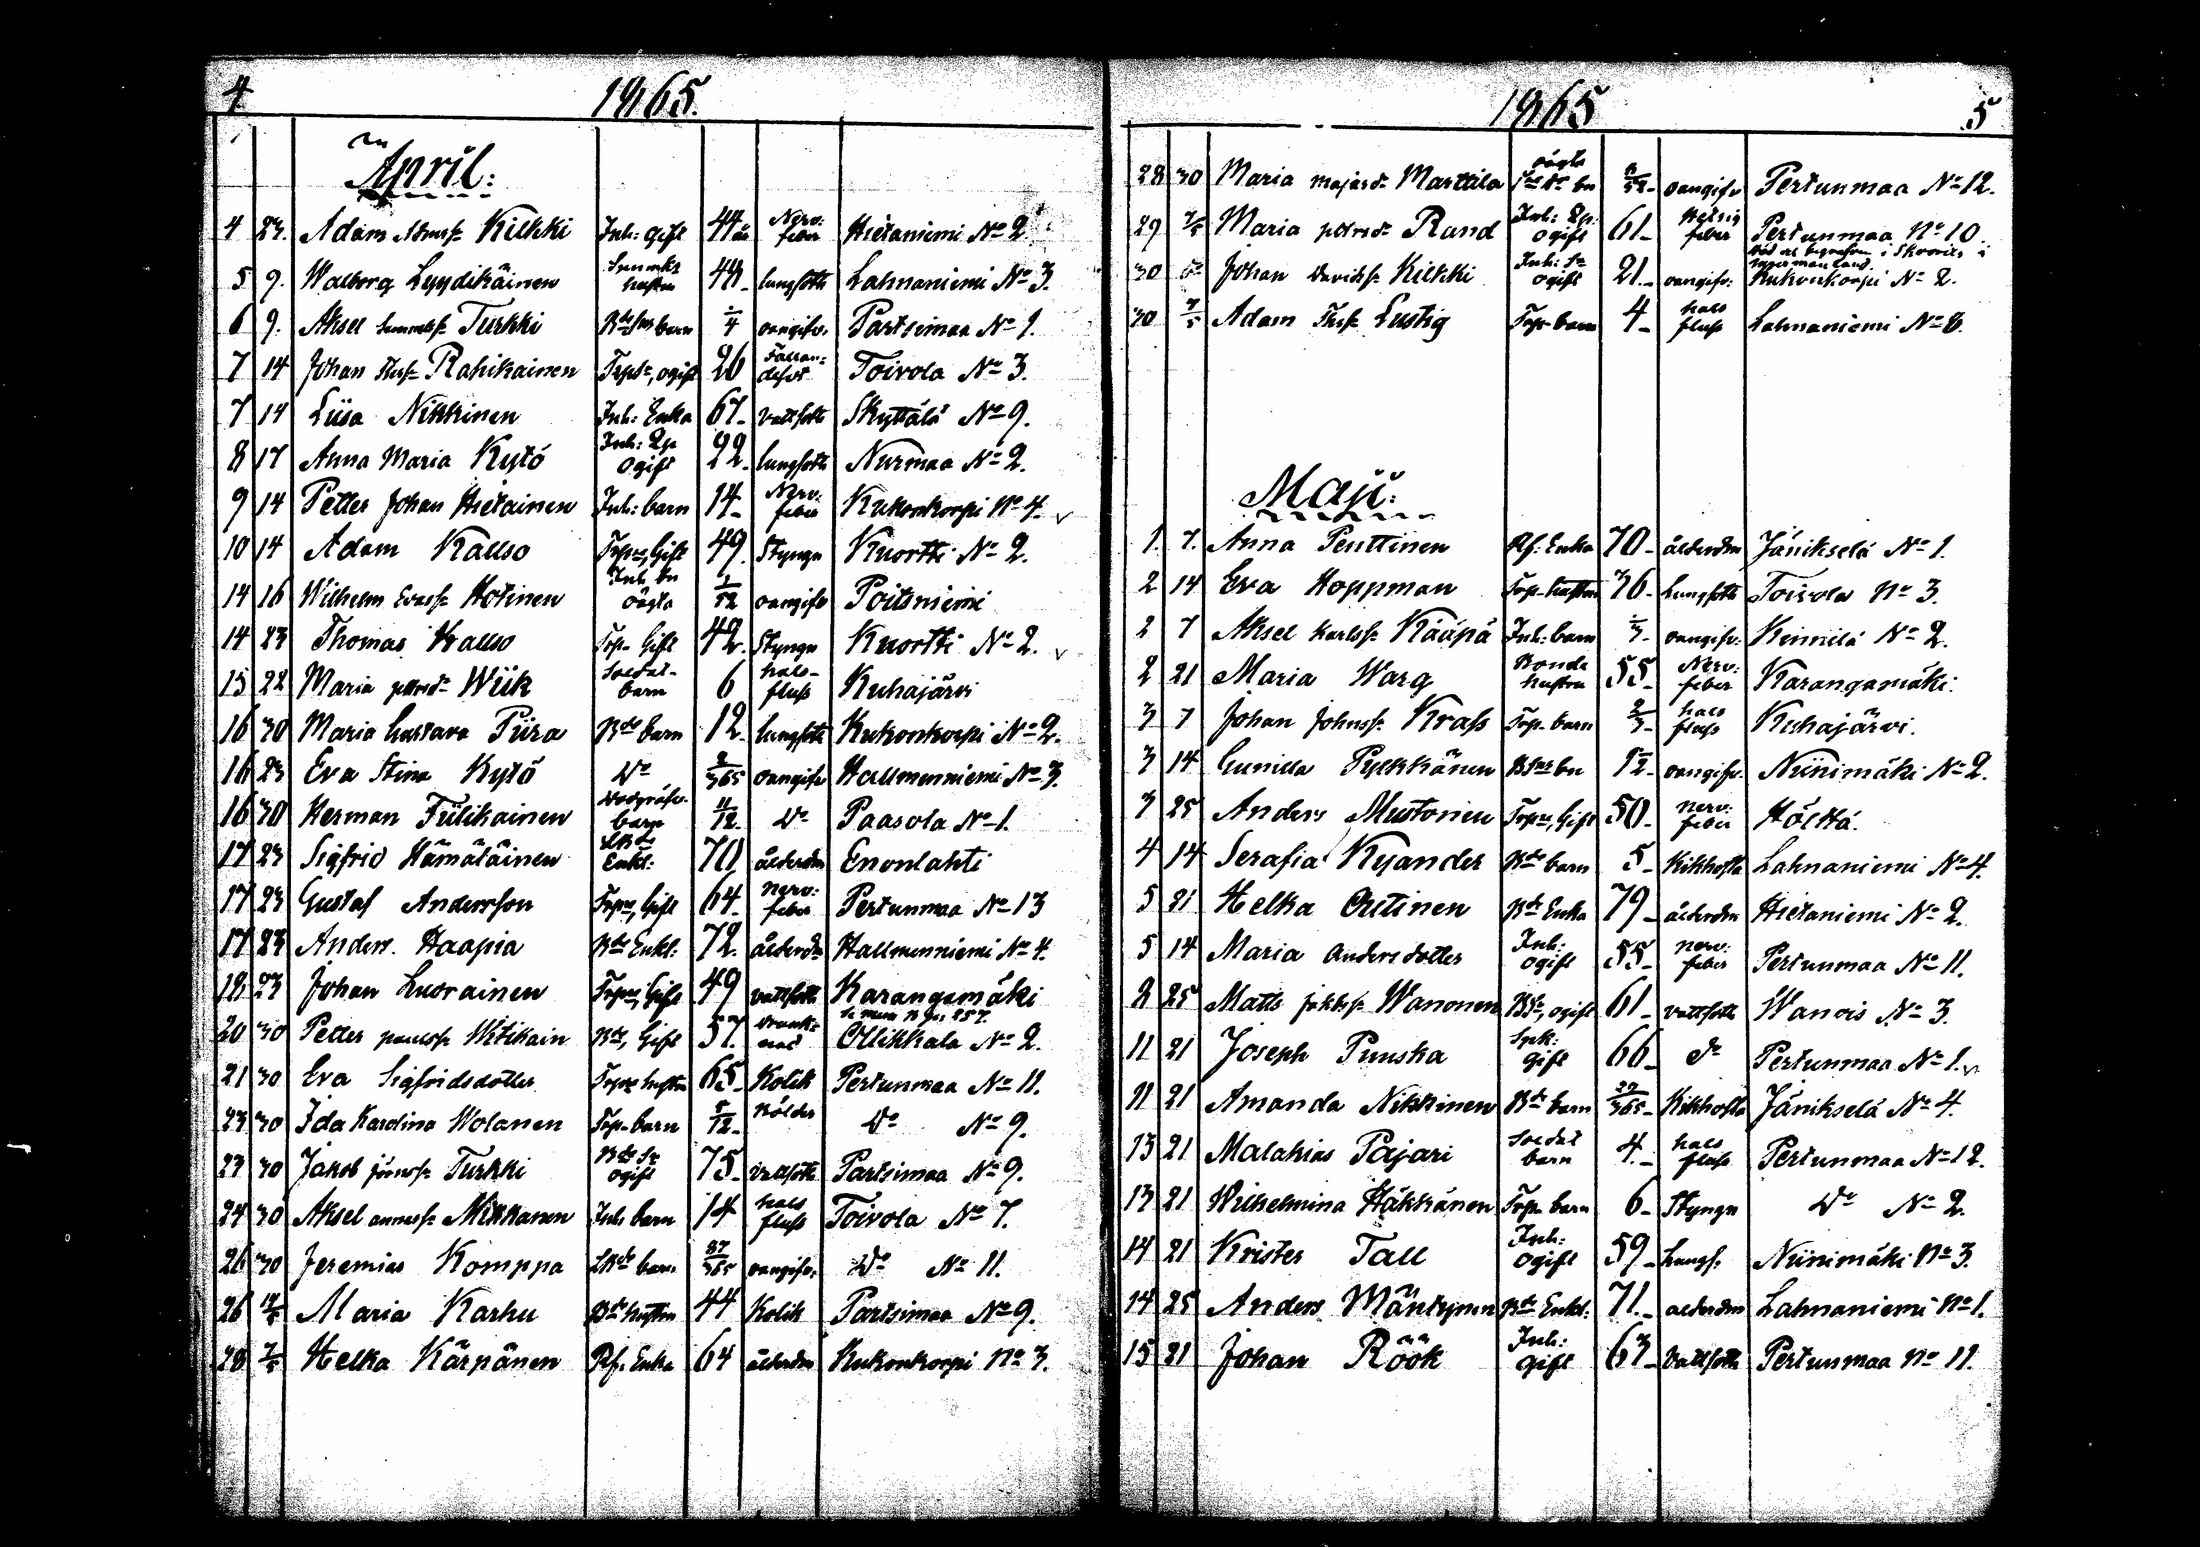 4 1865.
April:
4 23. Adam Adamss: Kilkki Inh: gift 44 år Nerv: feber Hietaniemi No 2
5 9. Walborg Lyydikäinen hustru 44 lungsotts Lahnaniemi No 3.
6 9. Aksel Turkki barn 1/4 oangifv. Partsimaa No 1.
7 14 Johan Rahikainen ogift 26 Fallan: desot Toivola No 3.
7 14 Liisa Nikkinen Inh: Enka 67 vattsotts Skyttälä No 9.
8 17 Anna Maria Kytö Inh: ogift 22 lungsotts Nurmaa No 2.
9 14 Petter Johan Hietainen Inh: barn 14 Nerv: feber Kukonkorpi No 4.
10 14 Adam Kallso Gift 49. Styngn Kuortti No 2.
14 16 Wilhelm Evass: Hotinen Inh bn oägta 1/12 oangifv Poitsniemi
14 23 Thomas Kallso Trp Gift 42. Styngn Kuortti No 2.
15 22 Maria Wiik Soldat- barn 6 hals- fluss Kuhajärvi
16 30 Maria Gustava Piira Bde barn 12. lungsotts Kukonkorpi No 2.
16 23 Eva Stina Kytö Do 2/365 oangifv Hallmenniemi No 3.
16 30 Herman Fiilikainen barn 4/12. Do Paasola No 1.
17 23 Sigfrid Hämäläinen Enkl: 70 ålderdm Enonlahti
17 23 Gustaf Andersson Gift 64. nerv: feber Pertunmaa No 13
17 23 Anders. Haapia Bde Enkl: 72. ålderdm Hallmenniemi No 4.
18 23 Johan Luorainen Gift 49 vattsotts Karangamäki
20 30 Petter paulss: Witikain Bde, Gift 57. Ollikkala No 2.
21 30 Eva Sigfridsdotter hustru 65. Kolik Pertunmaa No 11.
23 30 Ida Karolina Wolanen Trp barn 5/12. Bölder Do No 9.
23 30 Jakob Turkki ogift 75. vattsotts Partsimaa No 9.
24 30 Aksel annass: Mikkanen Inh barn 14 hals fluss Toivola No 7.
26 30 Jeremias Komppa barn 27/365 oangifv. Do No 11.
26 14/5 Maria Karhu Bde hustru 44 Kolik Partsimaa No 9.
28 7/5 Helka Kärpänen Rf. Enka 64 ålderdm Kukonkorpi No 3.
1865 5
28 30 Maria majasdr Marttila oägta bn oangifv Pertunmaa No 12.
29 7/5 Maria Rand Inh: ogift 61. feber Pertunmaa No 10.
30 Johan Davidss: Kilkki Inh: ogift 21. oangifv: Kukonkorpi No 2.
30 7/5 Adam Lustig Trp barn 4. hals fluss Lahnaniemi No 8.
Maji:
1. 7. Anna Penttinen Rf: Enka 70. ålderdm Jänikselä No 1.
2 14 Eva Hoppman Trp hustru 36. Lungsotts Toivola No 3.
2 7 Aksel Karlss: Kääpä Inh: barn oangifv: Kinnilä No 2.
2 21 Maria Warg Bonde hustru 55. Nerv: feber Karangamäki.
3 7 Johan Johnss: Krass Trp barn 2/3. hals fluss Kuhajärvi.
3 14 Gunilla Pylkkänen bn oangifv. Niinimäki No 2.
3 25 Anders Mustonen Gift 50. nerv: feber Hölttä.
4 14 Serafia Kyander Bde barn 5. Kikhosta Lahnaniemi No 4.
5 21 Helka Outinen Bde Enka 79. ålderdm Hietaniemi No 2.
5 14 Maria Andersdotter Inh: ogift 55. nerv: feber Pertunmaa No 11.
25 Matts Wanonen ogift 61. vattsotts Wanois No 3.
11 21 Joseph Puuska gift 66. do Pertunmaa No 1.
11 21 Amanda Nikkinen Bde barn Kikhosta Jänikselä No 4.
13 21 Malakias Pajari Soldat barn 4. hals fluss Pertunmaa No 12.
13 21 Wilhelmina Häkkänen Trp barn 6. Styngn Do No 2.
14 21 Krister Tall Inh: ogift 59. Lungs. Niinimäki No 3.
14 25 Anders Mäntynen Bde Enkl: 71. ålderdm Lahnaniemi No 1.
15 21 Johan Röök Inh: gift 63. Vattsotts Pertunmaa No 11.